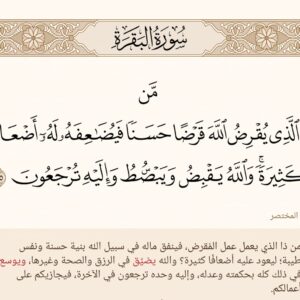 سُورَةُ البَقَرَةِ
مَّن
ٱلَّذِى يُقْرِضُ ٱللَّهَ قَرْضًا حَسَنًا فَيُضَـٰعِفَهُۥ لَهُۥٓ أَضْعَا
كَثِيرَةً ۚ وَٱللَّهُ يَقْبِضُ وَيَبْصُۜطُ وَإِلَيْهِ تُرْجَعُونَ
المختصر
من ذا الذي يعمل عمل المُقرض، فينفق ماله في سبيل الله بنية حسنة ونفس
طيبة؛ ليعود عليه أضعافًا كثيرة؟ والله يضيّق في الرزق والصحة وغيرها، ويوسع
في ذلك كله بحكمته وعدله، وإليه وحده ترجعون في الآخرة، فيجازيكم على
أعمالكم.